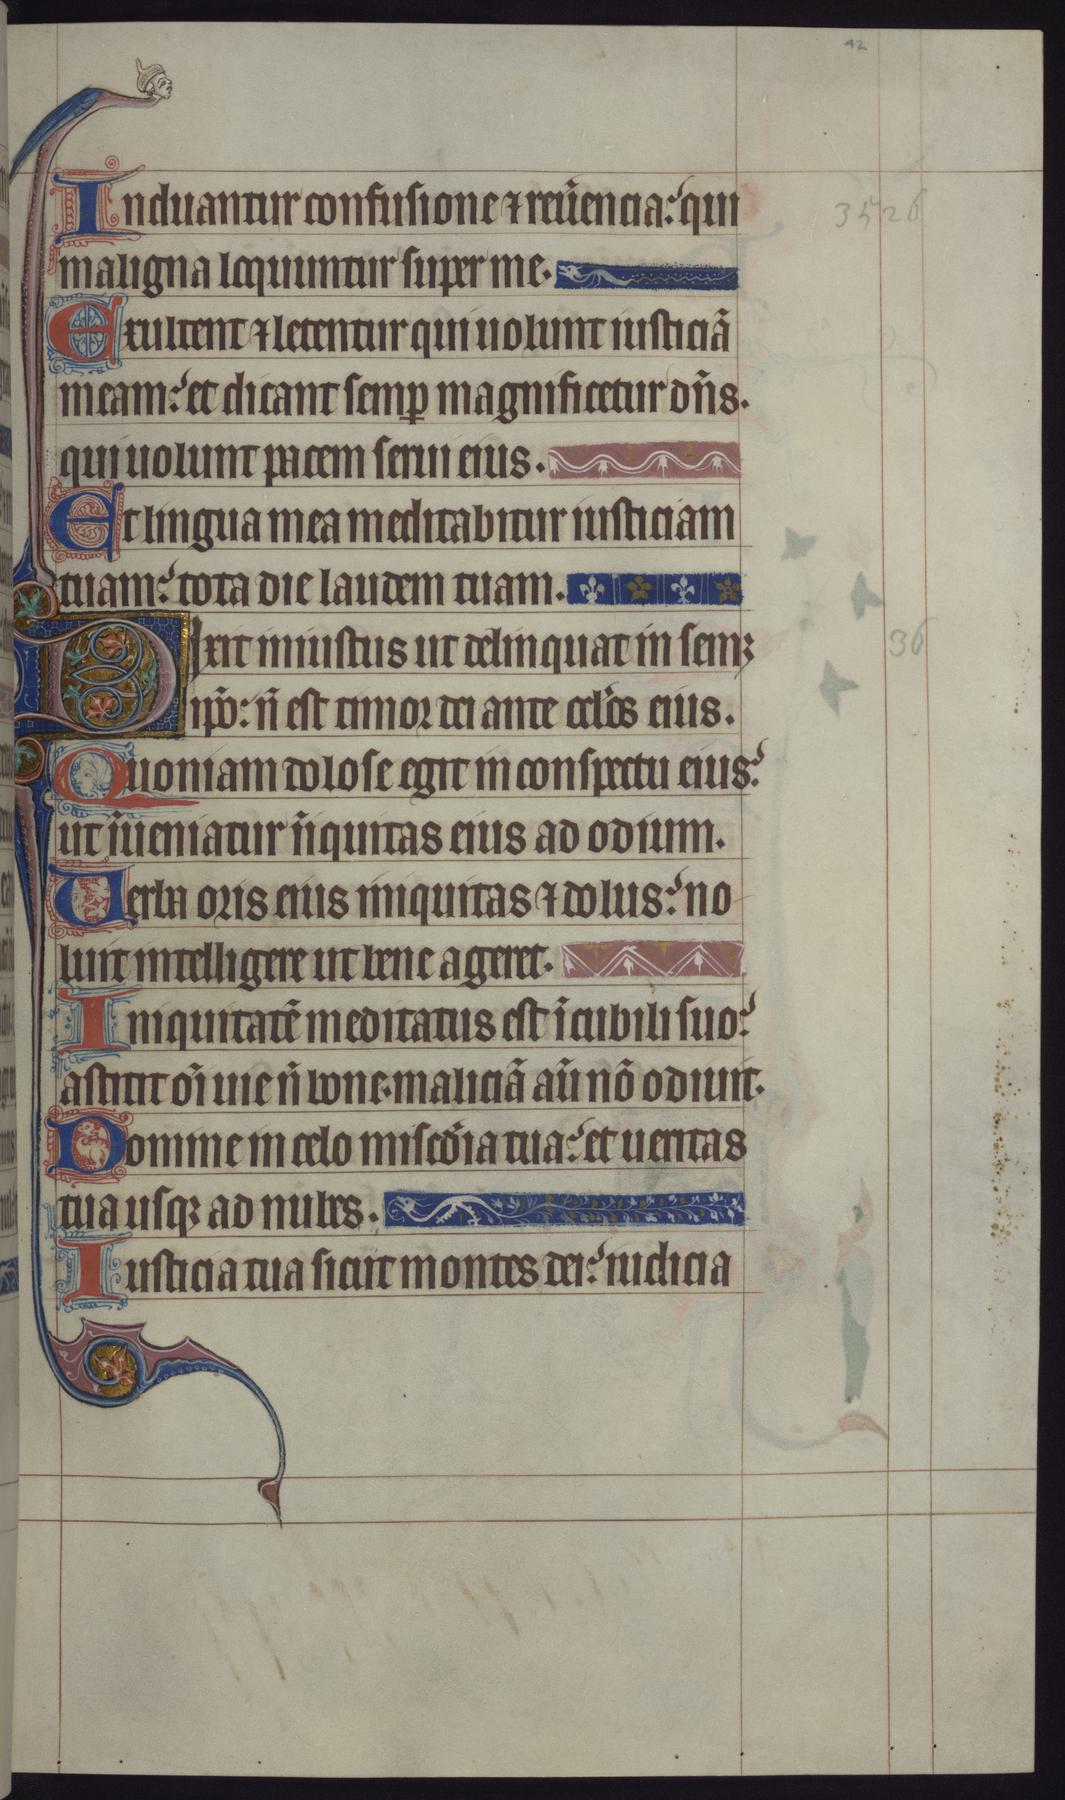 42
Induantur confusione ⁊ reuͥencia: qui
3526
maligna loquuntur super me.
Exultent ⁊ letentur qui uolunt iusticiā
meam: et dicant semꝑ magnificetur dn̄s.
qui uolunt pacem serui eius.
Et lingua mea meditabitur iusticiam
tuam: tota die laudem tuam.
Dixit iniustus ut delinquat in semꝫ
36
ip̄o: n̄ est timor dei ante oc̄los eius.
Quoniam dolose egit in conspectu eius:
ut īueniatur īiquitas eius ad odium.
Uerba oris eius iniquitas ⁊ dolus: no
luit intelligere ut bene ageret.
Iniquitatē meditatus est ī cubili suo:
astitit oī uie n̄ bone. maliciā au̅ nō odiuit.
Domine in celo misc̄dia tua: et ueritas
tua usqꝫ ad nubes.
Iusticia tua sicut montes dei: iudicia